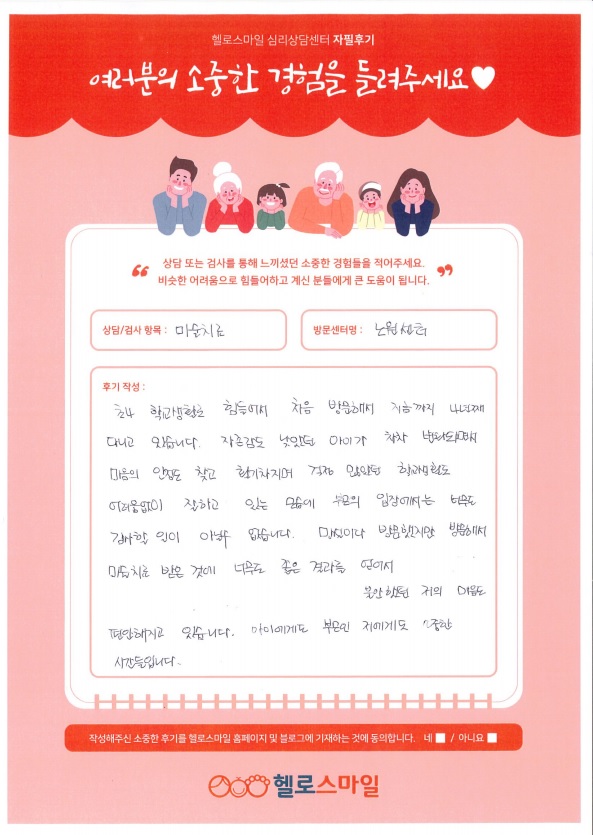 헬로스마일 심리상담센터 자필후기
여러분의 소중한 경험을 들려주세요
상담 또는 검사를 통해 느끼셨던 소중한 경험들을 적어주세요.
비슷한 어려움으로 힘들어하고 계신 분들에게 큰 도움이 됩니다.
상담/검사 항목 : 미술치료
방문센터명 : 노원센터
후기 작성 :
초4 학교생활로 힘들어서 처음 방문해서 지금까지 4년째
다니고 있습니다. 자존감도 낮았던 아이가 차차 변화되면서
마음의 안정도 찾고 활기차지며 걱정 많았던 학교생활도
어려움없이 잘하고 있는 모습에 부모의 입장에서는 너무도
감사할 일이 아닐수 없습니다. 망설이다 방문했지만 방문해서
미술치료 받은 것에 너무도 좋은 결과를 얻어서
불안했던 저의 마음도
편안해지고 있습니다. 아이에게도 부모인 저에게도 소중한
시간들입니다.
작성해주신 소중한 후기를 헬로스마일 홈페이지 및 블로그에 기재하는 것에 동의합니다. 네 / 아니요
헬로스마일